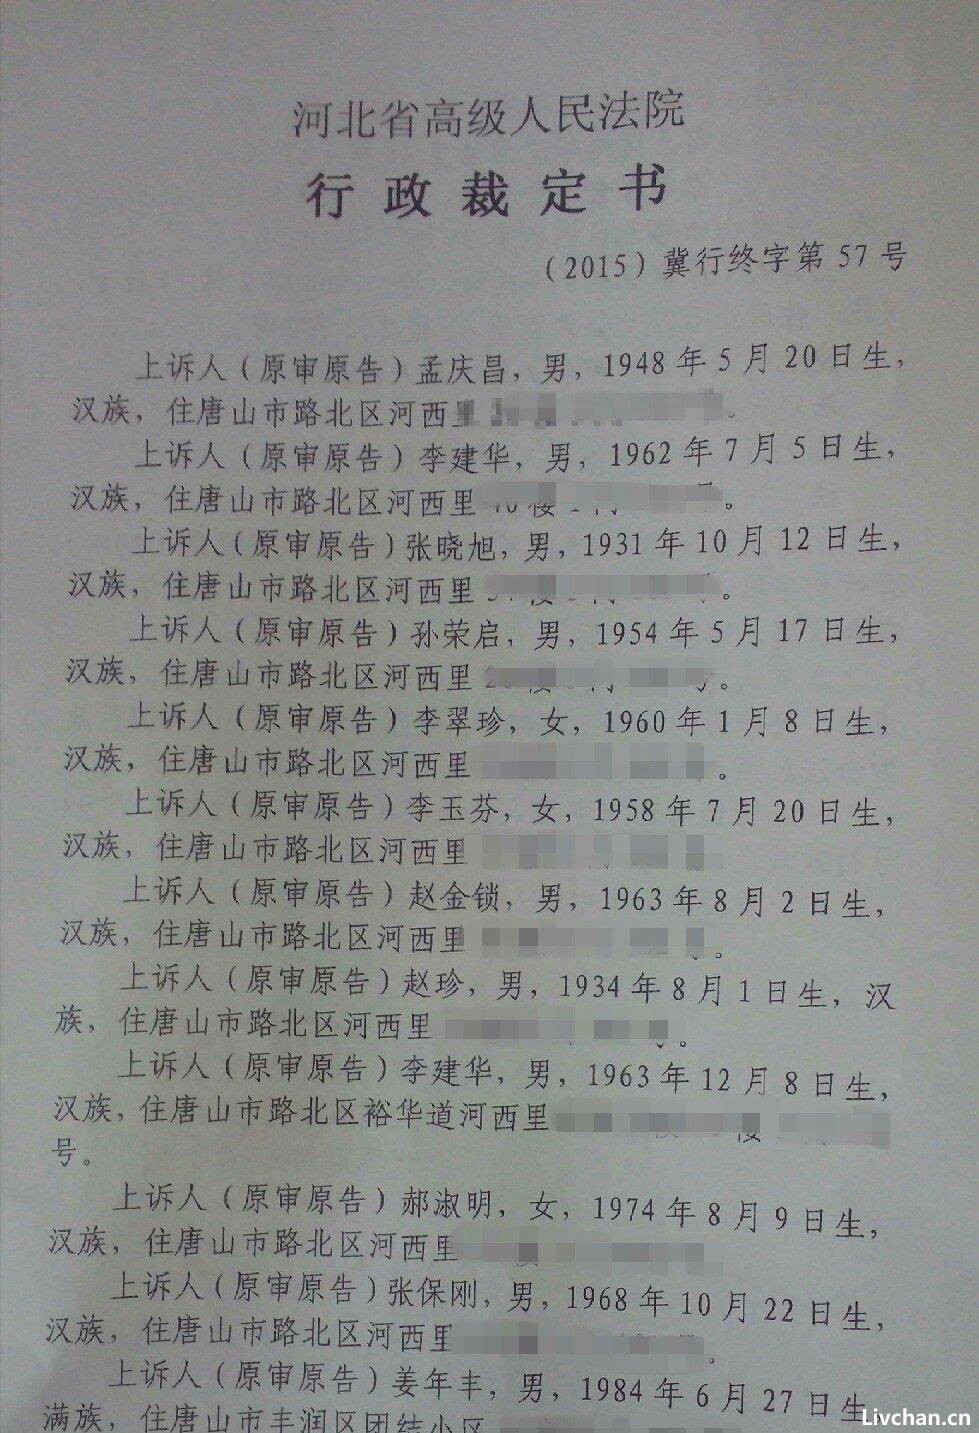 河北省高级人民法院
行政裁定书
(2015)冀行终字第57号
上诉人(原审原告)孟庆昌,男,1948年5月20日生,
汉族,住唐山市路北区河西里
上诉人(原审原告)李建华,男,1962年7月5日生,
汉族,住唐山市路北区河西里
上诉人(原审原告)张晓旭,男,1931年10月12日生,
汉族,住唐山市路北区河西里
上诉人(原审原告)孙荣启,男,1954年5月17日生,
汉族,住唐山市路北区河西里
上诉人(原审原告)李翠珍,女,1960年1月8日生,
汉族,住唐山市路北区河西里
上诉人(原审原告)李玉芬,女,1958年7月20日生,
汉族,住唐山市路北区河西里
上诉人(原审原告)赵金锁,男,1963年8月2日生,
汉族,住唐山市路北区河西里
上诉人(原审原告)赵珍,男,1934年8月1日生,汉
族,住唐山市路北区河西里
上诉人(原审原告)李建华,男,1963年12月8日生,
汉族,住唐山市路北区裕华道河西里
号。
上诉人(原审原告)郝淑明,女,1974年8月9日生,
汉族,住唐山市路北区河西里
上诉人(原审原告)张保刚,男,1968年10月22日生,
汉族,住唐山市路北区河西里
上诉人(原审原告)姜年丰,男,1984年6月27日生,
满族,住唐山市丰润区团结小区
Livchan.cn